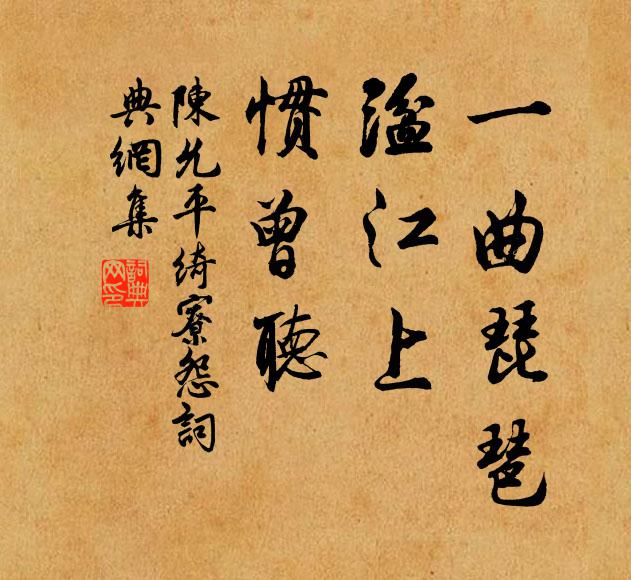 一曲琵琶
湓江上
慣曾聽
陳允平綺寮怨詞
典網集
詞典網印